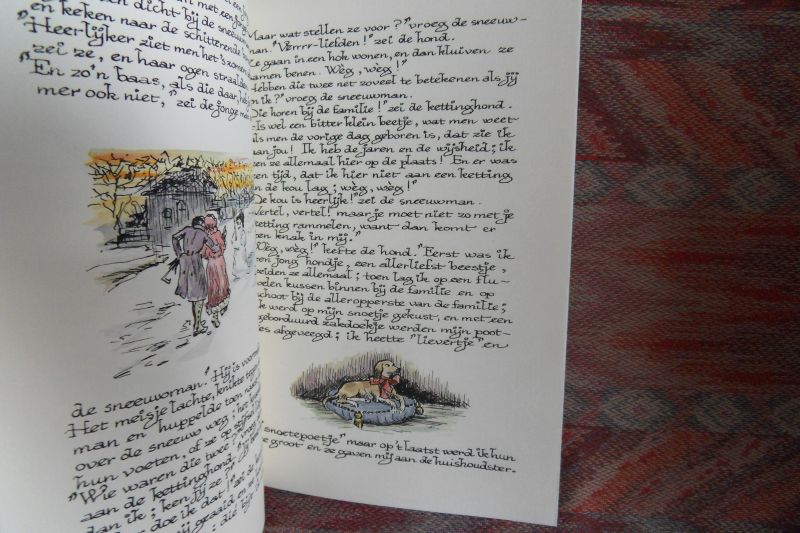 en keken naar de schitterende
"Heerlijker ziet men het 's zomers
zei ze, en haar ogen straalden
"En zo'n baas, als die daar, heb
mer ook niet," zei de jonge man
de sneeuwman. "Hij is voorn
Het meisje lachte, knikte tegen
man en huppelde toen naar
over de sneeuw weg; het
hun voeten, of ze op stijfsel
"Wie waren die twee?" vroeg
aan de kettinghond.
dan ik; ken jij ze?" zei de
doe ik dat!"
mij geaaid en
Maar wat stellen ze voor?" vroeg de sneeuw-
man. "Verrrr-liefden!" zei de hond.
Ze gaan in een hok wonen, en dan kluiven ze
samen benen. Wèg, wèg!"
Hebben die twee net zoveel te betekenen als jij
en ik?" vroeg de sneeuwman.
Die horen bij de familie!" zei de kettinghond.
't Is wel een bitter klein beetje, wat men weet
als men de vorige dag geboren is, dat zie ik
aan jou! Ik heb de jaren en de wijsheid; ik
ken ze allemaal hier op de plaats! En er was
een tijd, dat ik hier niet aan een ketting
in de kou lag; wèg, wèg!"
De kou is heerlijk!" zei de sneeuwman.
Vertel, vertel! maar je moet niet zo met je
ketting rammelen, want dan komt er
een knak in mij."
Wèg, wèg!" kefte de hond. "Eerst was ik
een jong hondje, een allerliefst beestje,
zeiden ze allemaal; toen lag ik op een flu-
welen kussen binnen bij de familie en op
schoot bij de alleropperste van de familie;
ik werd op mijn snoetje gekust, en met een
geborduurd zakdoekje werden mijn poot-
jes afgeveegd; ik heette "lievertje" en
snoetepoetje," maar op 't laatst werd ik hun
te groot en ze gaven mij aan de huishoudster.